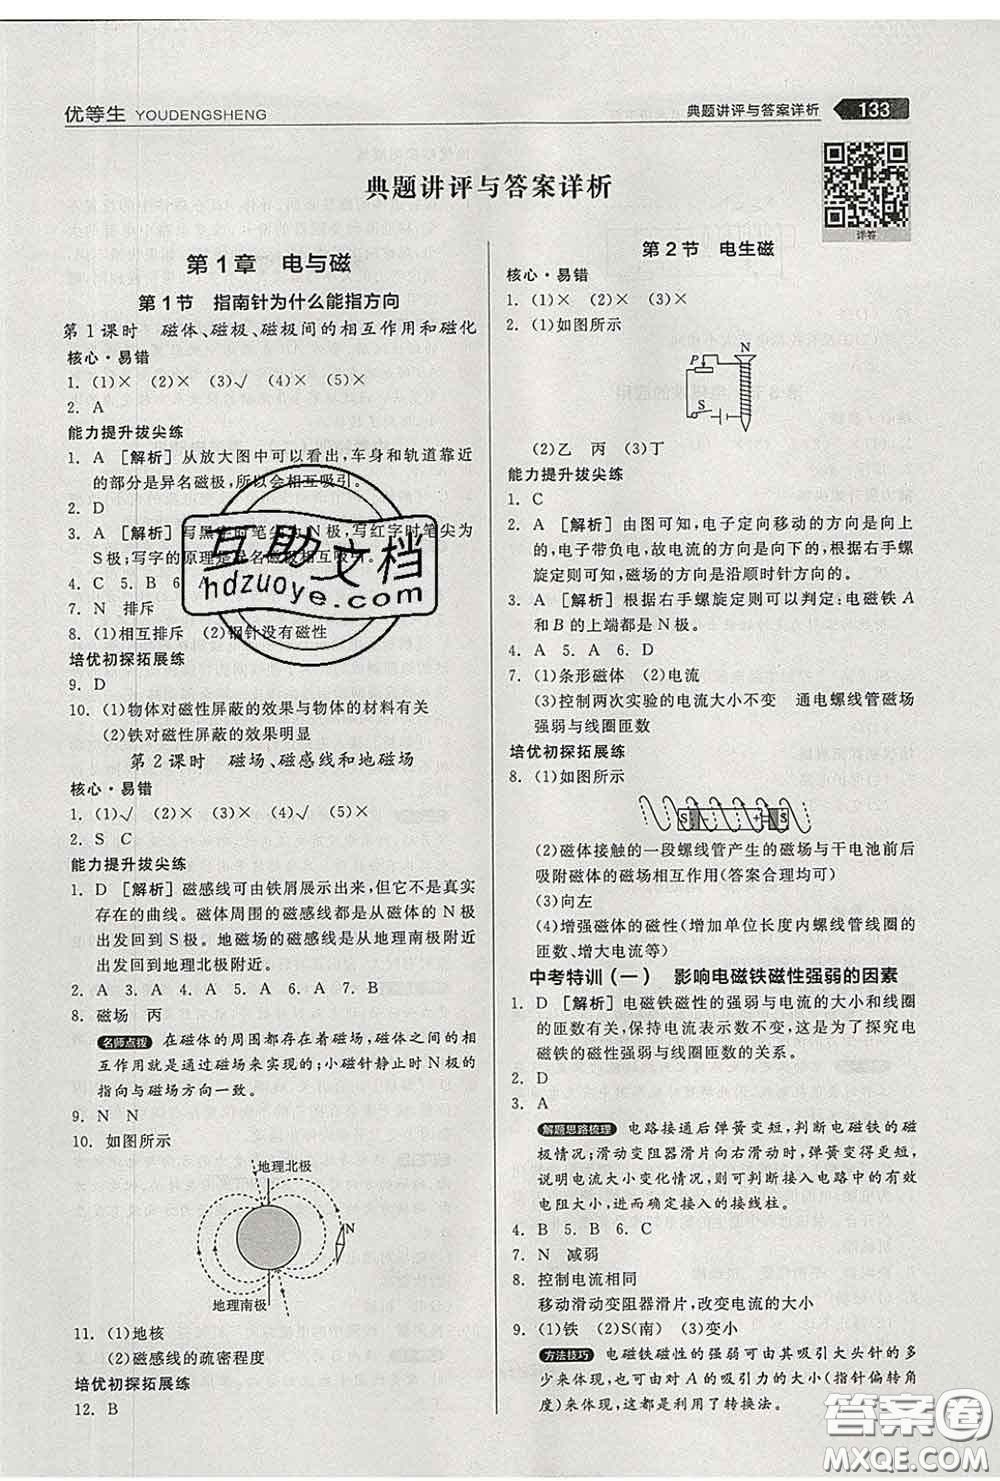 优等生 YOUDENGSHENG
典题讲评与答案详析 133
详答
典题讲评与答案详析
第1章 电与磁
第1节 指南针为什么能指方向
第1课时 磁体、磁极、磁极间的相互作用和磁化
核心·易错
1. (1)× (2)× (3)√ (4)× (5)×
2. A
能力提升拔尖练
1. A [解析] 从放大图中可以看出,车身和轨道靠近
的部分是异名磁极,所以会相互吸引。
2. D
3. A [解析] 写黑字时笔尖为N极,写红字时笔尖为
S极;写字的原理是异名磁极相互吸引。
4. C 5. B 6. A
7. N 排斥
8. (1)相互排斥 (2)钢针没有磁性
培优初探拓展练
9. D
10. (1)物体对磁性屏蔽的效果与物体的材料有关
(2)铁对磁性屏蔽的效果明显
第2课时 磁场、磁感线和地磁场
核心·易错
1. (1)√ (2)× (3)× (4)√ (5)×
2. S C
能力提升拔尖练
1. D [解析] 磁感线可由铁屑展示出来,但它不是真实
存在的曲线。磁体周围的磁感线都是从磁体的N极
出发回到S极。地磁场的磁感线是从地理南极附近
出发回到地理北极附近。
2. A 3. D 4. A 5. A 6. A 7. B
8. 磁场 丙
名师点拨 在磁体的周围都存在着磁场,磁体之间的相
互作用就是通过磁场来实现的;小磁针静止时N极的
指向与磁场方向一致。
9. N N
10. 如图所示
地理北极
N
地理南极
11. (1)地核
(2)磁感线的疏密程度
培优初探拓展练
12. B
第2节 电生磁
核心·易错
1. (1)× (2)× (3)×
2. (1)如图所示
P
N
S
(2)乙 丙 (3)丁
能力提升拔尖练
1. C
2. A [解析] 由图可知,电子定向移动的方向是向上
的,电子带负电,故电流的方向是向下的,根据右手螺
旋定则可知,磁场的方向是沿顺时针方向的。
3. A [解析] 根据右手螺旋定则可以判定:电磁铁A
和B的上端都是N极。
4. A 5. A 6. D
7. (1)条形磁体 (2)电流
(3)控制两次实验的电流大小不变 通电螺线管磁场
强弱与线圈匝数
培优初探拓展练
8. (1)如图所示
S - + N S
(2)磁体接触的一段螺线管产生的磁场与干电池前后
吸附磁体的磁场相互作用(答案合理均可)
(3)向左
(4)增强磁体的磁性(增加单位长度内螺线管线圈的
匝数、增大电流等)
中考特训(一) 影响电磁铁磁性强弱的因素
1. D [解析] 电磁铁磁性的强弱与电流的大小和线圈
的匝数有关,保持电流表示数不变,这是为了探究电
磁铁的磁性强弱与线圈匝数的关系。
2. D
3. A
解题思路梳理 电路接通后弹簧变短,判断电磁铁的磁
极情况;滑动变阻器滑片向右滑动时,弹簧又变短,
说明电流大小变化情况,则可判断接入电路中的有效
电阻大小,进而确定接入的接线柱。
4. B 5. B 6. C
7. N 减弱
8. 控制电流相同
移动滑动变阻器滑片,改变电流的大小
9. (1)铁 (2)S(南) (3)变小
方法技巧 电磁铁磁性的强弱可由其吸引大头针的多
少来体现,也可由对A的吸引力的大小(指针偏转角
度)来体现,这是利用了转换法。
互助文档
hdzuoye.com
答案圈
MXQE.COM